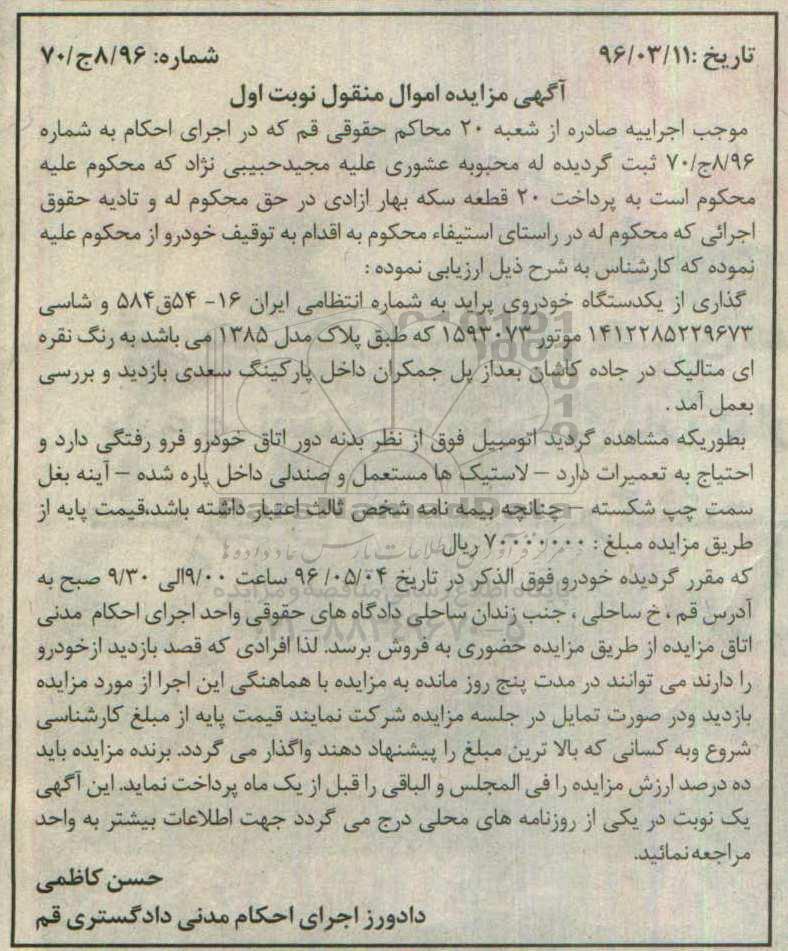 تاریخ :۹۶/۰۳/۱۱ شماره: ۸/۹۶ج/۷۰
آگهی مزایده اموال منقول نوبت اول
موجب اجراییه صادره از شعبه ۲۰ محاکم حقوقی قم که در اجرای احکام به شماره
۸/۹۶ج/۷۰ ثبت گردیده له محبوبه عشوری علیه مجیدحبیبی نژاد که محکوم علیه
محکوم است به پرداخت ۲۰ قطعه سکه بهار ازادی در حق محکوم له و تادیه حقوق
اجرائی که محکوم له در راستای استیفاء محکوم به اقدام به توقیف خودرو از محکوم علیه
نموده که کارشناس به شرح ذیل ارزیابی نموده :
گذاری از یکدستگاه خودروی پراید به شماره انتظامی ایران ۱۶- ۵۴ق۵۸۴ و شاسی
۱۴۱۲۲۸۵۲۲۹۶۷۳ موتور ۱۵۹۳۰۷۳ که طبق پلاک مدل ۱۳۸۵ می باشد به رنگ نقره
ای متالیک در جاده کاشان بعداز پل جمکران داخل پارکینگ سعدی بازدید و بررسی
بعمل آمد .
بطوریکه مشاهده گردید اتومبیل فوق از نظر بدنه دور اتاق خودرو فرو رفتگی دارد و
احتیاج به تعمیرات دارد – لاستیک ها مستعمل و صندلی داخل پاره شده – آینه بغل
سمت چپ شکسته – چنانچه بیمه نامه شخص ثالث اعتبار داشته باشد،قیمت پایه از
طریق مزایده مبلغ : ۷۰۰۰۰۰۰۰ ریال
که مقرر گردیده خودرو فوق الذکر در تاریخ ۹۶/۰۵/۰۴ ساعت ۹/۰۰الی ۹/۳۰ صبح به
آدرس قم ، خ ساحلی ، جنب زندان ساحلی دادگاه های حقوقی واحد اجرای احکام مدنی
اتاق مزایده از طریق مزایده حضوری به فروش برسد. لذا افرادی که قصد بازدید ازخودرو
را دارند می توانند در مدت پنج روز مانده به مزایده با هماهنگی این اجرا از مورد مزایده
بازدید ودر صورت تمایل در جلسه مزایده شرکت نمایند قیمت پایه از مبلغ کارشناسی
شروع وبه کسانی که بالا ترین مبلغ را پیشنهاد دهند واگذار می گردد. برنده مزایده باید
ده درصد ارزش مزایده را فی المجلس و الباقی را قبل از یک ماه پرداخت نماید. این آگهی
یک نوبت در یکی از روزنامه های محلی درج می گردد جهت اطلاعات بیشتر به واحد
مراجعه نمائید.
حسن کاظمی
دادورز اجرای احکام مدنی دادگستری قم